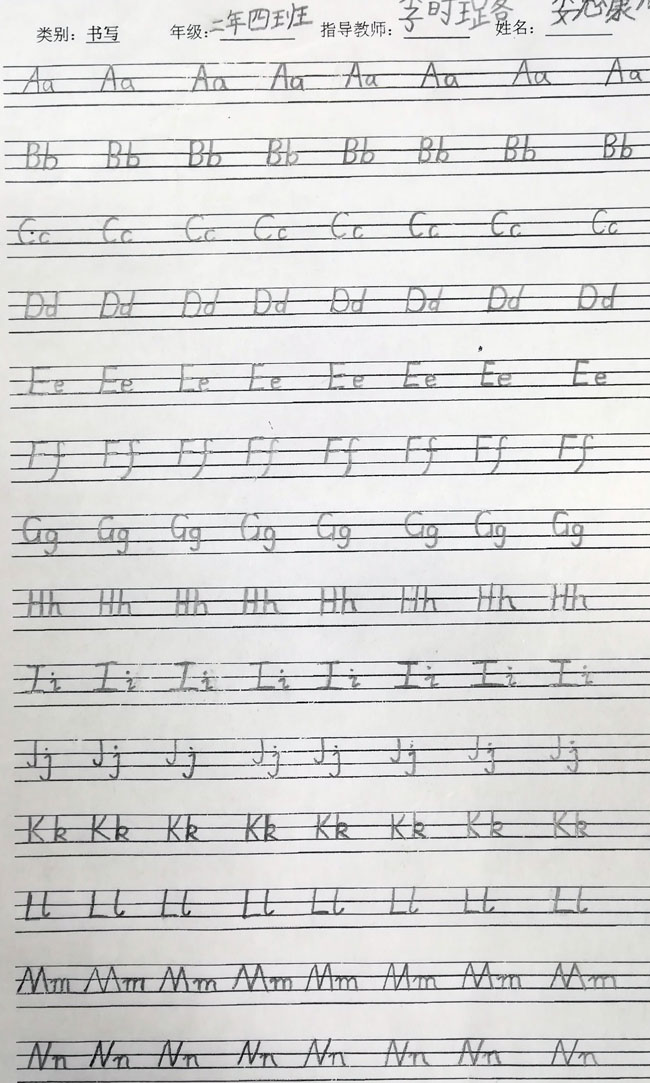 类别：书写 年级：二年四班班 指导教师： 姓名：
Aa Aa Aa Aa Aa Aa Aa Aa
Bb Bb Bb Bb Bb Bb Bb Bb
Cc Cc Cc Cc Cc Cc Cc Cc
Dd Dd Dd Dd Dd Dd Dd Dd
Ee Ee Ee Ee Ee Ee Ee Ee
Ff Ff Ff Ff Ff Ff Ff Ff
Gg Gg Gg Gg Gg Gg Gg Gg
Hh Hh Hh Hh Hh Hh Hh Hh
Ii Ii Ii Ii Ii Ii Ii Ii
Jj Jj Jj Jj Jj Jj Jj Jj
Kk Kk Kk Kk Kk Kk Kk Kk
Ll Ll Ll Ll Ll Ll Ll Ll
Mm Mm Mm Mm Mm Mm Mm Mm
Nn Nn Nn Nn Nn Nn Nn Nn